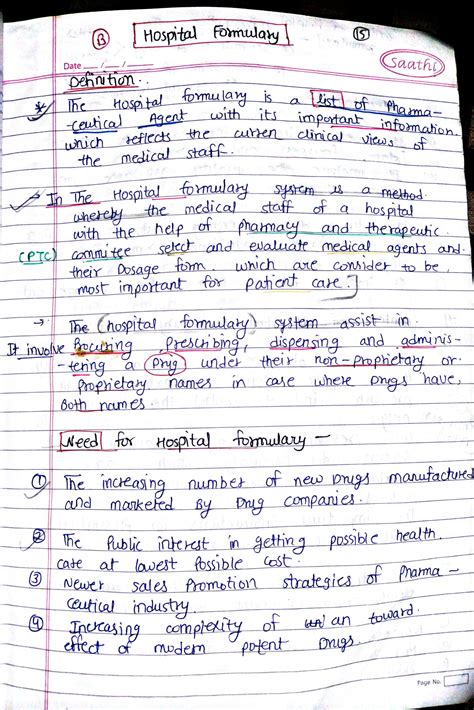 B Hospital Formulary 15
Date / / saathi
Definition..
* The Hospital formulary is a list of Pharma-
ceutical Agent with its important information.
which reflects the curren clinical views of
the medical staff.
In The Hospital formulary system is a method
whereby the medical staff of a hospital
with the help of pharmacy and therapeutic
(PTC) committee select and evaluate medical agents and
their Dosage form. which are consider to be
most important for patient care.]
→ The (hospital formulary) system assist in
It involve Procuring, Prescribing, dispensing and adminis-
-tering a Drug under their non-proprietary or
Proprietary names in case where Drugs have,
Both names.
Need for Hospital formulary -
① The increasing number of new Drugs manufactured
and marketed By Drug companies.
② The Public interest in getting possible health
care at lowest Possible cost.
③ Newer sales Promotion strategies of Pharma-
ceutical industry.
④ Increasing complexity of an toward
effect of modern potent Drugs.
Page No.